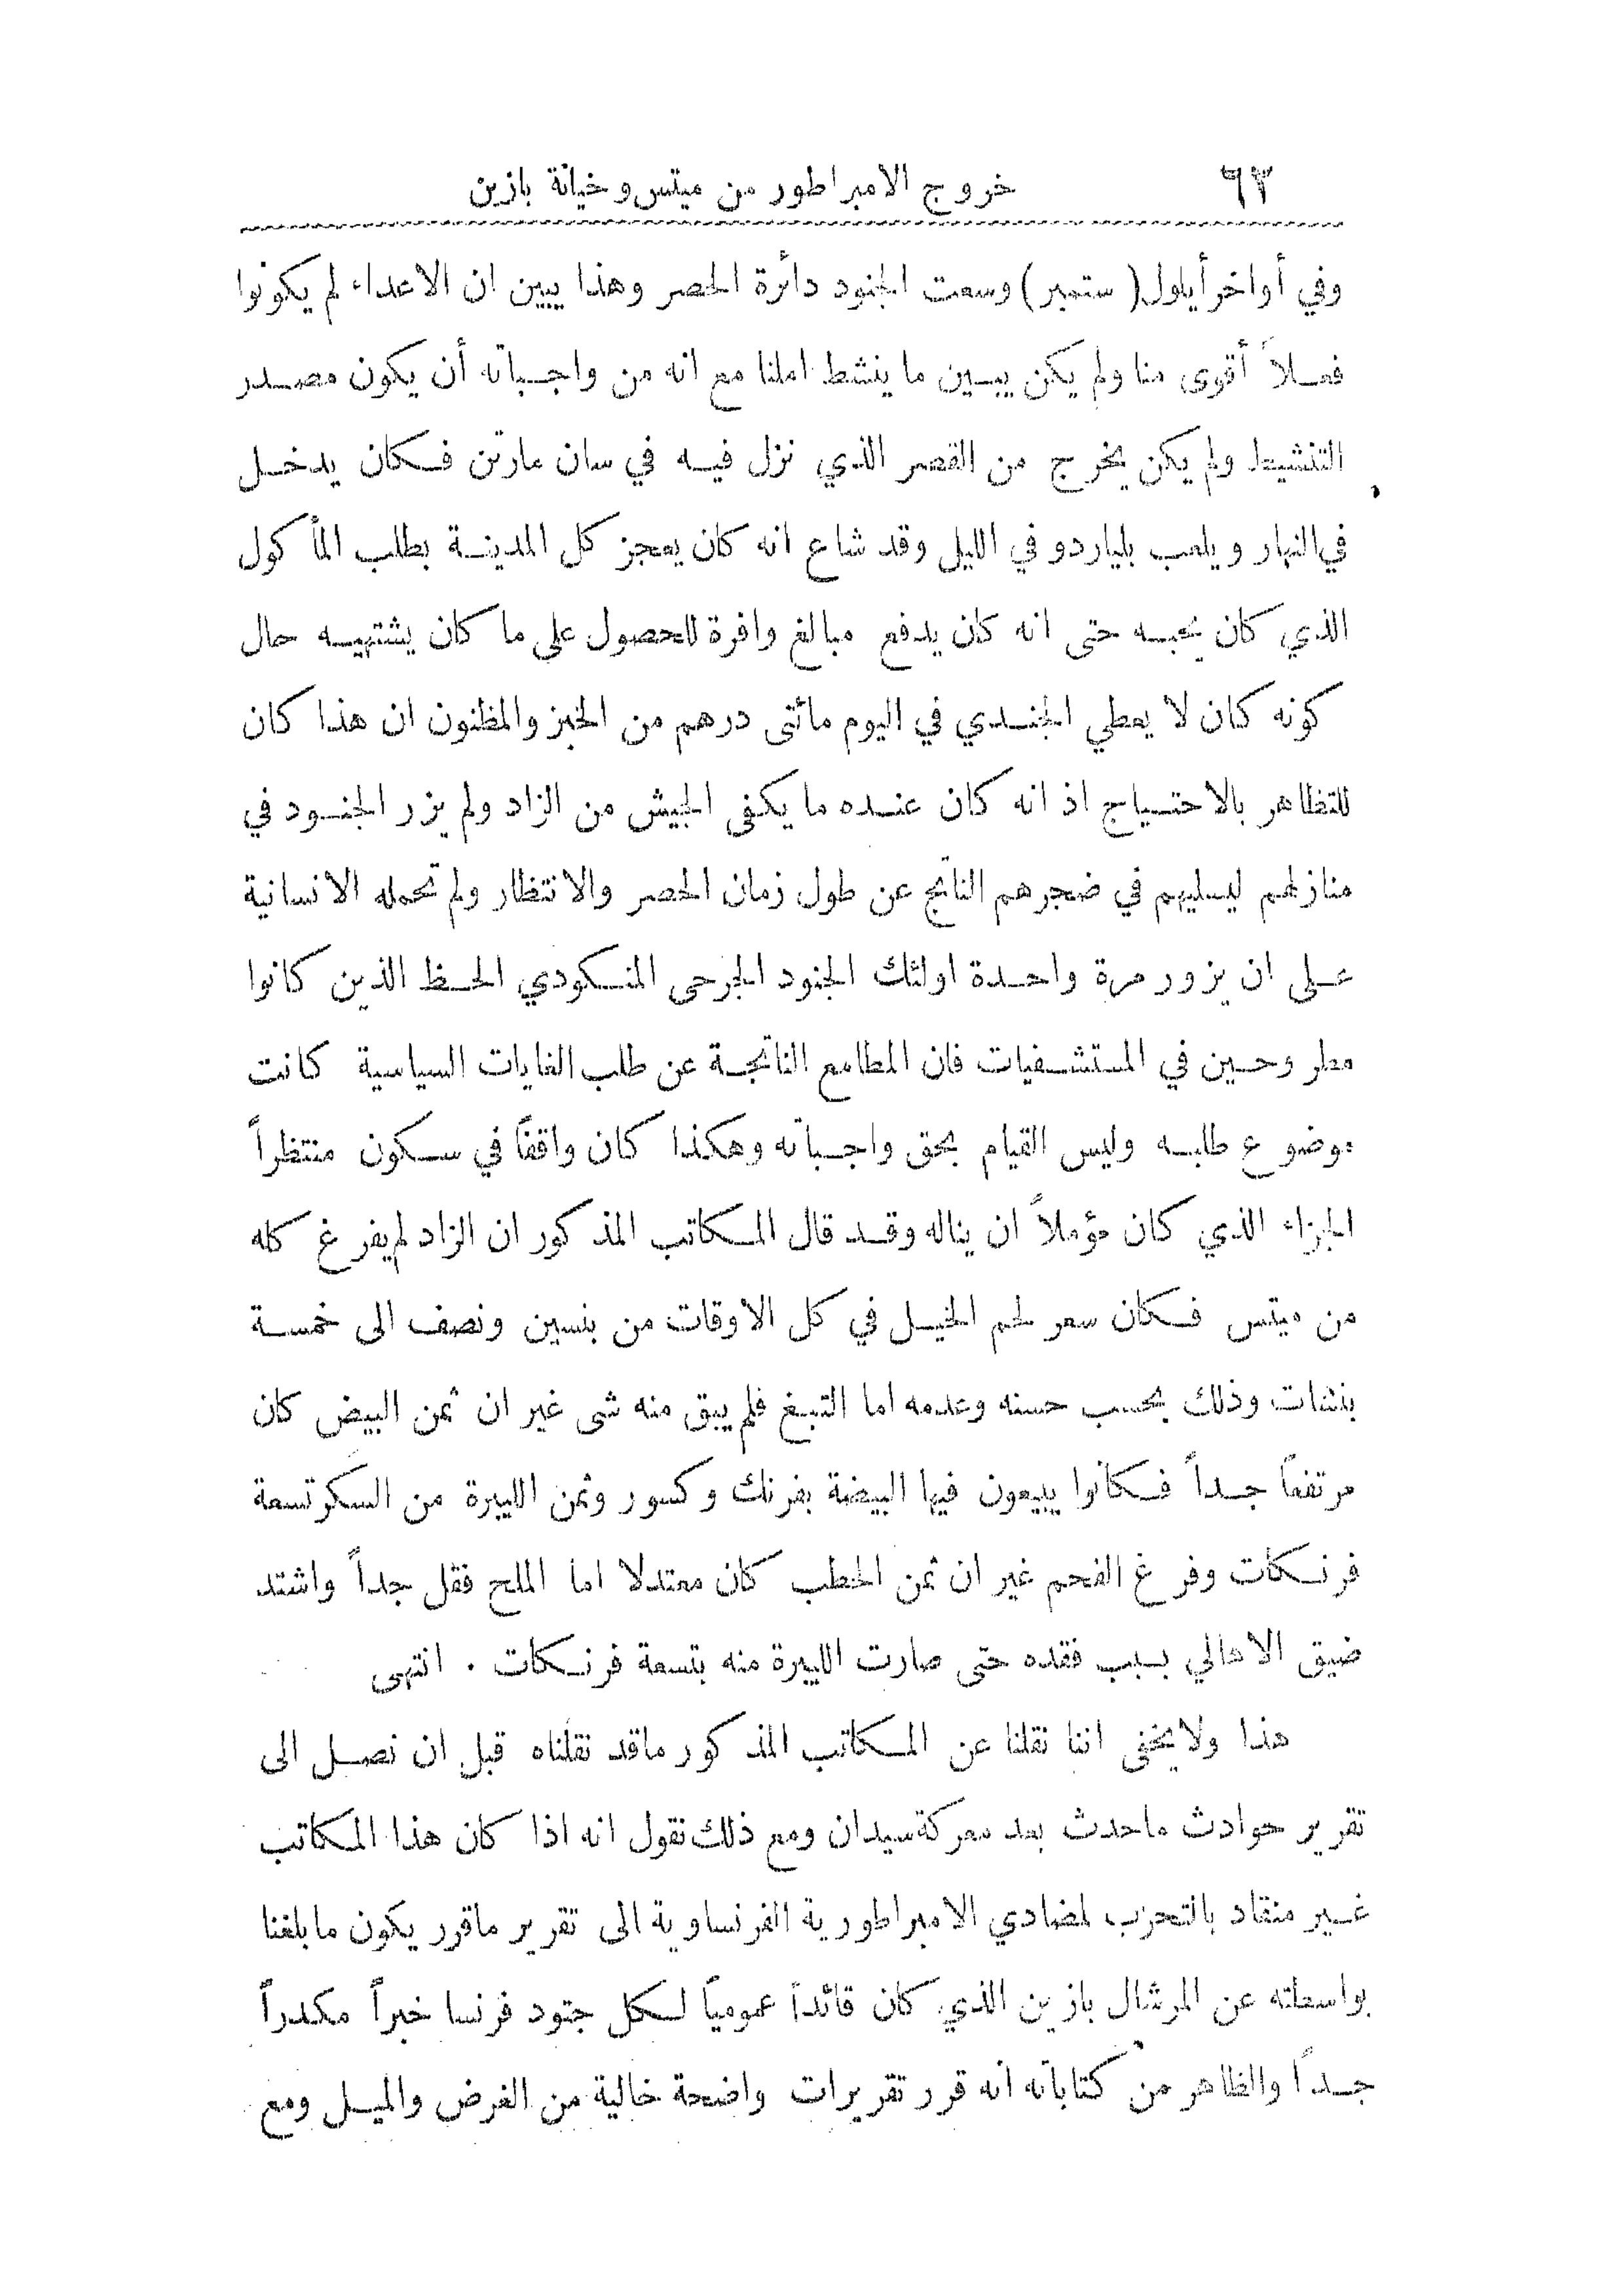 ٦٢ خروج الامبراطور من ميتس وخيانة بازين
وفي أواخر أيلول ( ستمبر ) وسعت الجنود دائرة الحصر وهذا يبين ان الاعداء لم يكونوا
فعلاً أقوى منا ولم يكن يبين ما ينشط املنا مع انه من واجباته أن يكون مصدر
التنشيط ولم يكن يخرج من القصر الذي نزل فيه في سان مارتن فكان يدخل
في النهار ويلعب بلياردو في الليل وقد شاع انه كان يعجز كل المدينة بطلب المأكول
الذي كان يحبه حتى انه كان يدفع مبالغ وافرة للحصول على ما كان يشتهيه حال
كونه كان لا يعطي الجندي في اليوم مائتى درهم من الخبز والمظنون ان هذا كان
للتظاهر بالاحتياج اذ انه كان عنده ما يكفى الجيش من الزاد ولم يزر الجنود في
منازلهم ليسليهم في ضجرهم الناتج عن طول زمان الحصر والانتظار ولم تحمله الانسانية
على ان يزور مرة واحدة اولئك الجنود الجرحى المنكودي الحظ الذين كانوا
مطروحين في المستشفيات فان المطامع الناتجة عن طلب الغايات السياسية كانت
موضوع طلبه وليس القيام بحق واجباته وهكذا كان واقفاً في سكون منتظراً
الجزاء الذي كان مؤملاً ان يناله وقد قال المكاتب المذكور ان الزاد لم يفرغ كله
من ميتس فكان سعر لحم الخيل في كل الاوقات من بنسين ونصف الى خمسة
بنسات وذلك بحسب حسنه وعدمه اما التبغ فلم يبق منه شى غير ان ثمن البيض كان
مرتفعاً جداً فكانوا يبيعون فيها البيضة بفرنك وكسور وثمن الليبرة من السكر تسعة
فرنكات وفرغ الفحم غير ان ثمن الحطب كان معتدلا اما الملح فقل جداً واشتد
ضيق الاهالي بسبب فقده حتى صارت الليبرة منه بتسعة فرنكات . انتهى
هذا ولا يخفى اننا نقلنا عن المكاتب المذكور ماقد نقلناه قبل ان نصل الى
تقرير حوادث ماحدث بعد معركة سيدان ومع ذلك نقول انه اذا كان هذا المكاتب
غير منقاد بالتحزب لمضادي الامبراطورية الفرنساوية الى تقرير ماقرر يكون مابلغنا
بواسطته عن المرشال بازين الذي كان قائداً عمومياً لكل جنود فرنسا خبراً مكدراً
جداً والظاهر من كتاباته انه قرر تقريرات واضحة خالية من الغرض والميل ومع